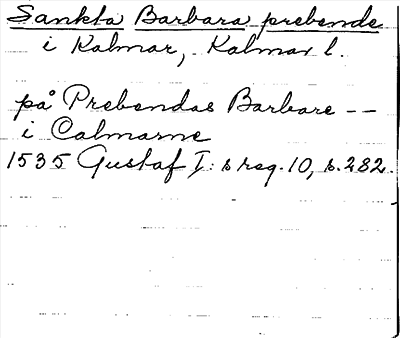 Sankta Barbara prebende
i Kalmar, Kalmar l.
på Prebendas Barbare --
i Calmarne
1535 Gustaf I:s reg. 10, s. 282.